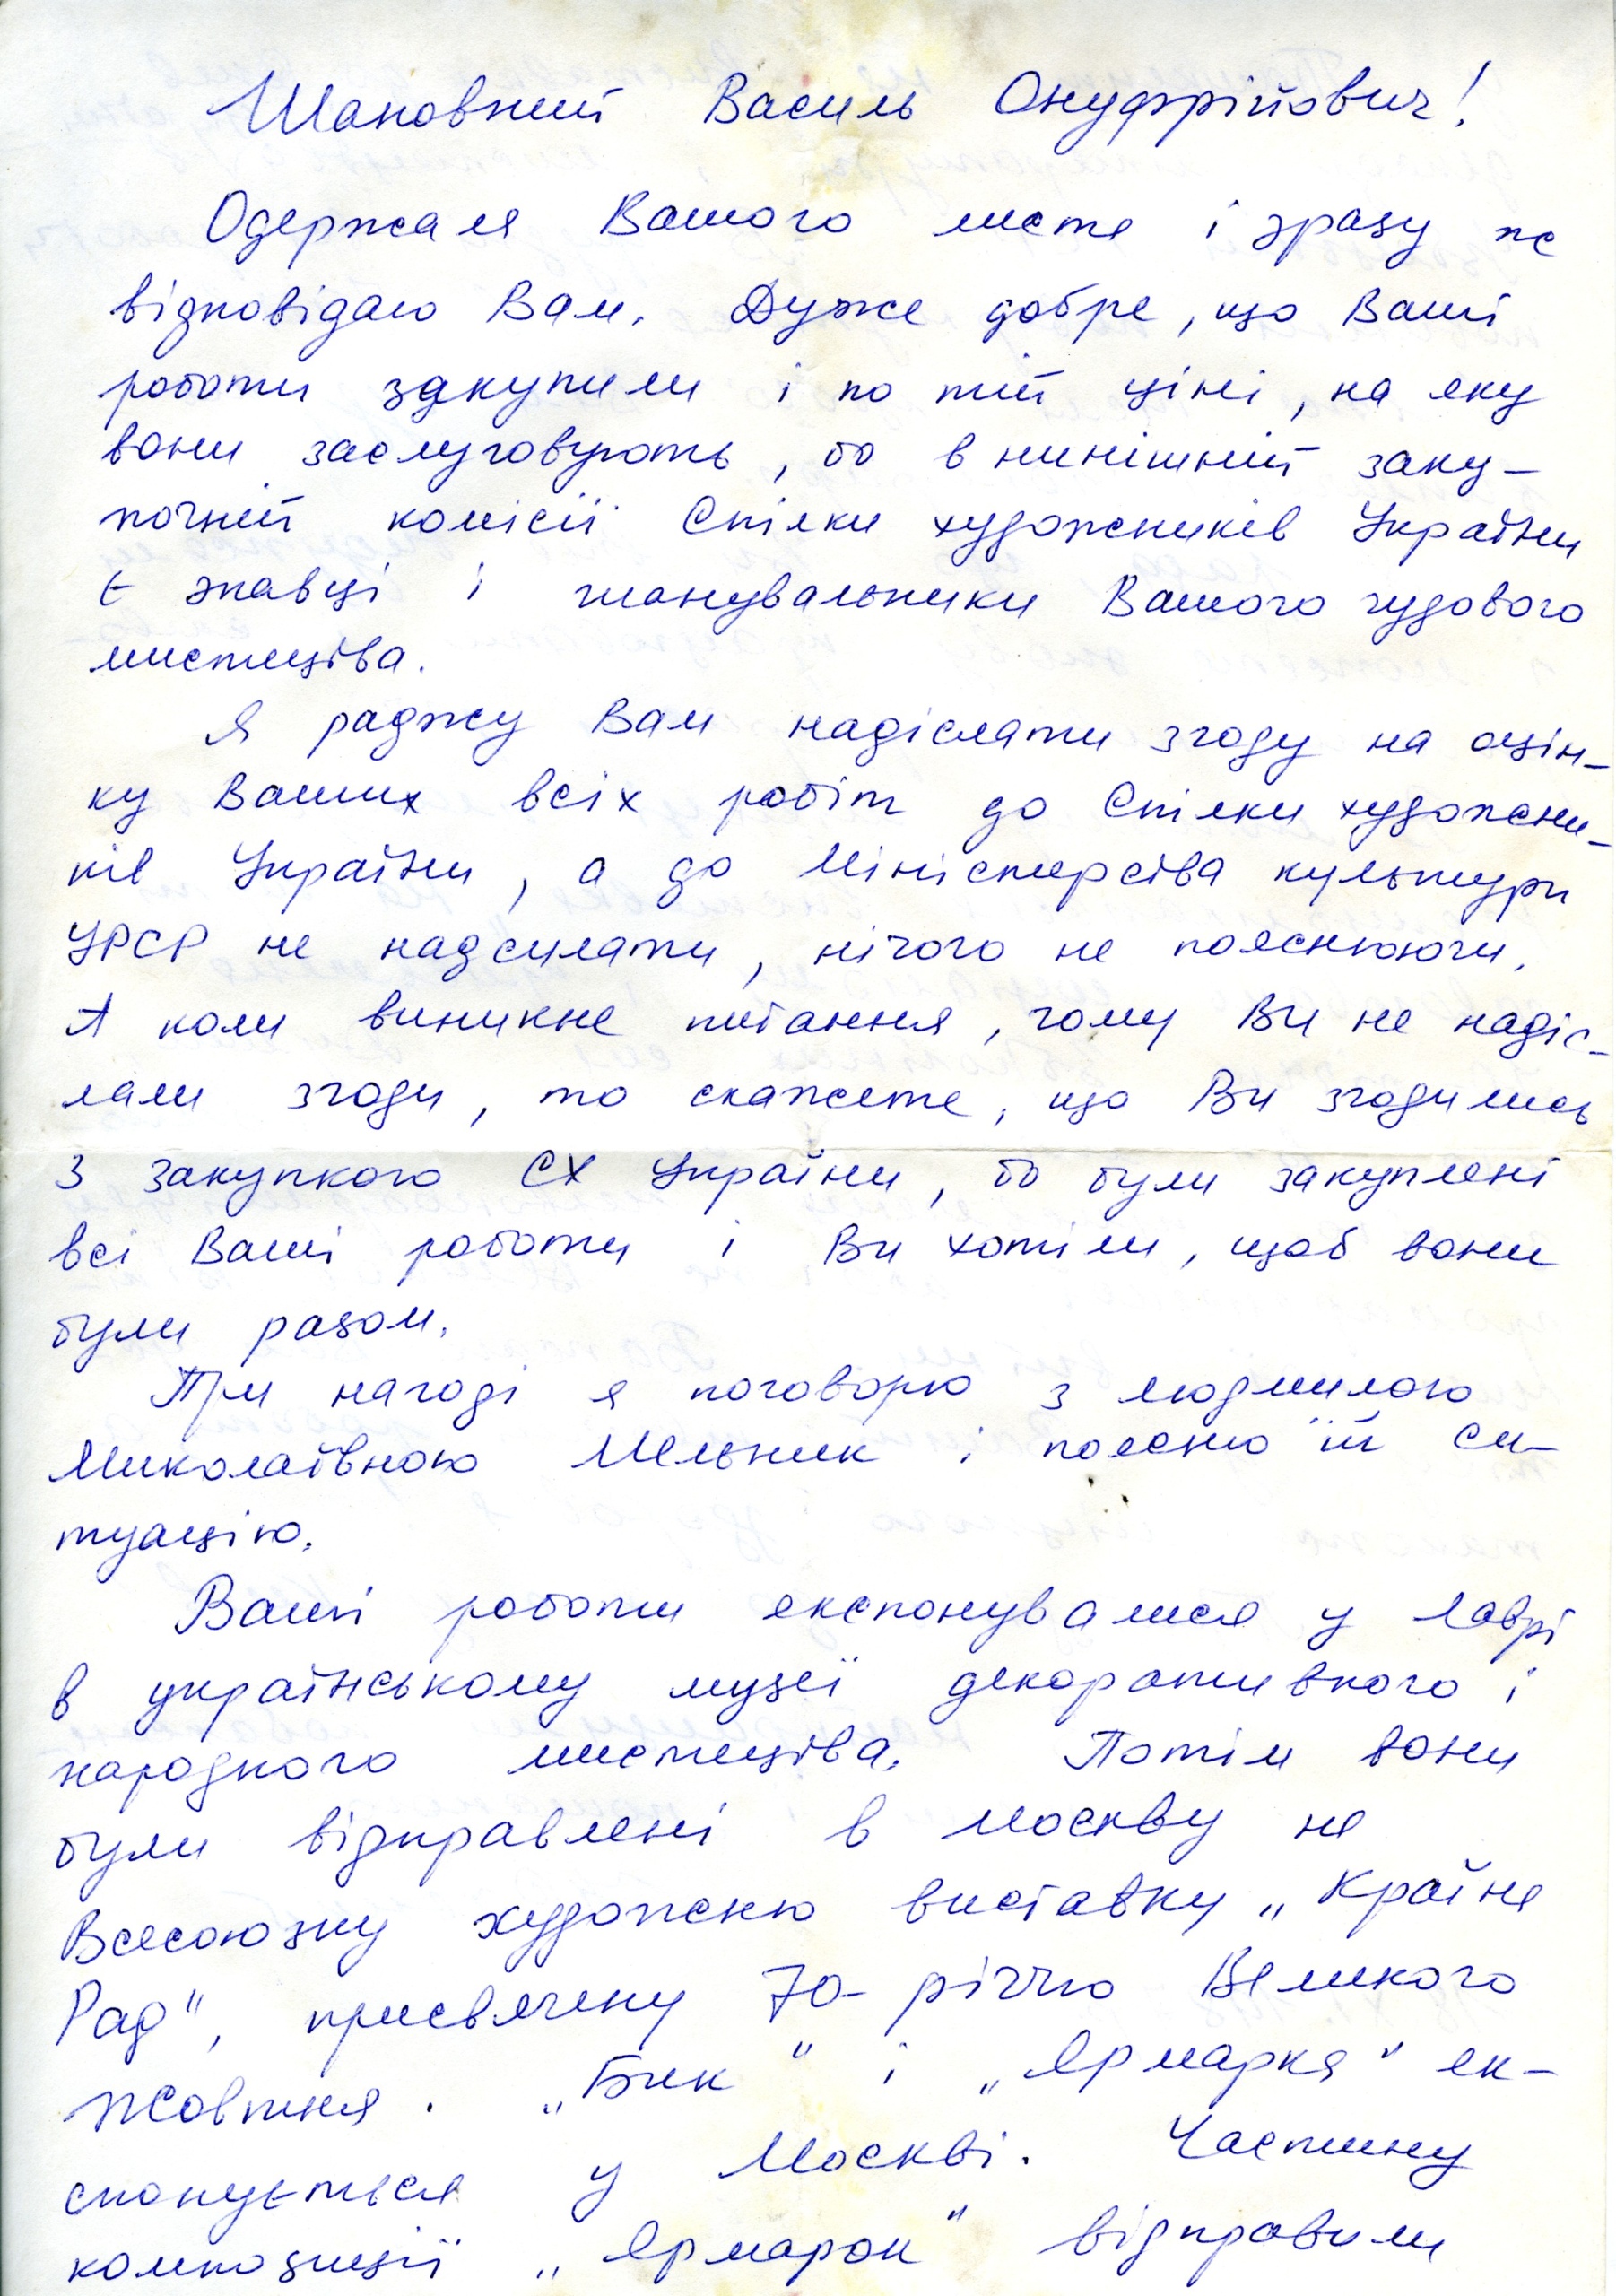 Шановний Василь Онуфрійович!
Одержала Вашого листа і зразу же
відповідаю Вам. Дуже добре, що Ваші
роботи закупили і по тій ціні, на яку
вони заслуговують, бо в нинішній заку-
почній комісії Спілки художників України
є знавці і шанувальники Вашого чудового
мистецтва.
Я раджу Вам надіслати згоду на оцін-
ку Ваших всіх робіт до Спілки художни-
ків України, а до Міністерства культури
УРСР не надсилати, нічого не пояснюючи.
А коли виникне питання, чому Ви не надіс-
лали згоди, то скажете, що Ви згодились
з закупкою СХ України, бо були закуплені
всі Ваші роботи і Ви хотіли, щоб вони
були разом.
При нагоді я поговорю з Людмилою
Миколаївною Мельник і поясню їй си-
туацію.
Ваші роботи експонувалися у Лаврі
в українському музеї декоративного і
народного мистецтва. Потім вони
були відправлені в Москву на
Всесоюзну художню виставку „Країна
Рад", присвячену 70-річчю Великого
Жовтня. „Бик" і „Ярмарка" ек-
спонується у Москві. Частину
композиції „Ярмарок" відправили